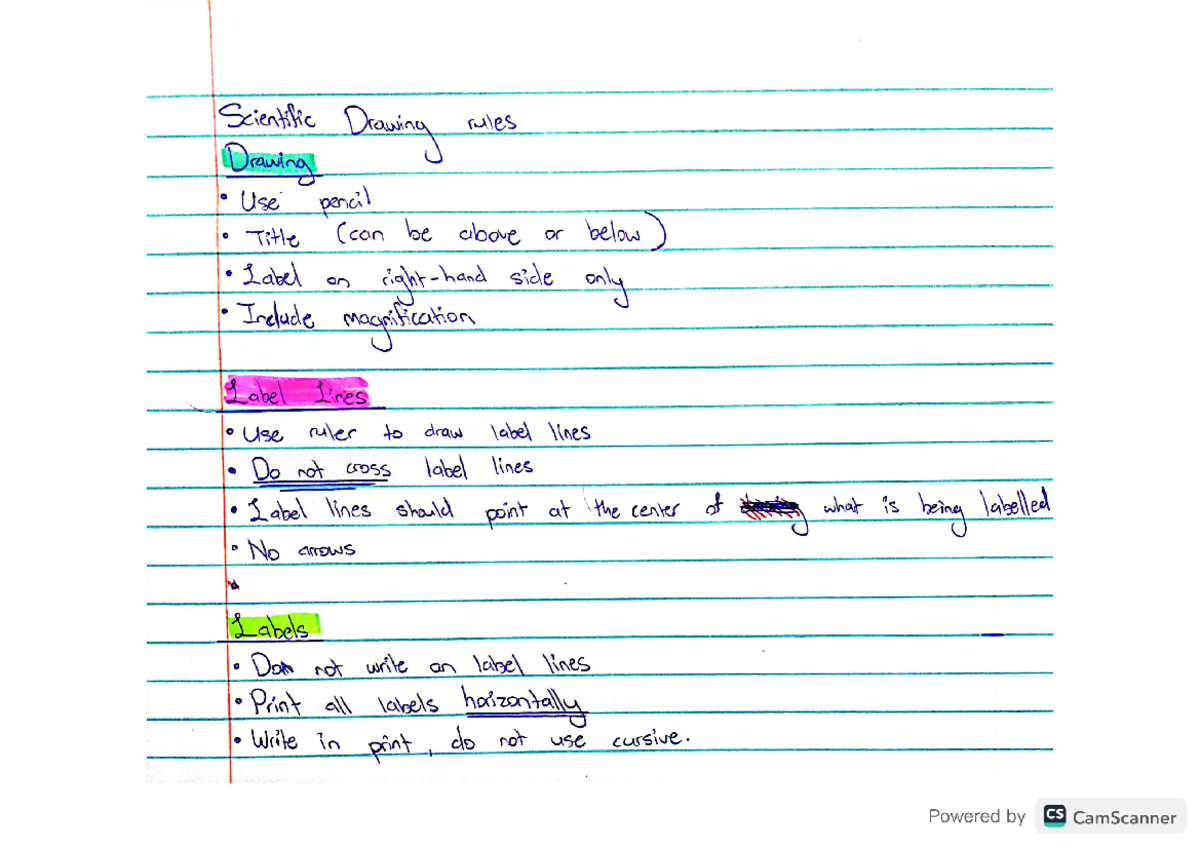 Scientific Drawing rules
Drawing
• Use pencil
• Title (can be above or below)
• Label on right-hand side only
• Include magnification
Label Lines
• Use ruler to draw label lines
• Do not cross label lines
• Label lines should point at the center of what is being labelled
• No arrows
•
Labels
• Do not write on label lines
• Print all labels horizontally
• Write in print, do not use cursive.
Powered by CS CamScanner